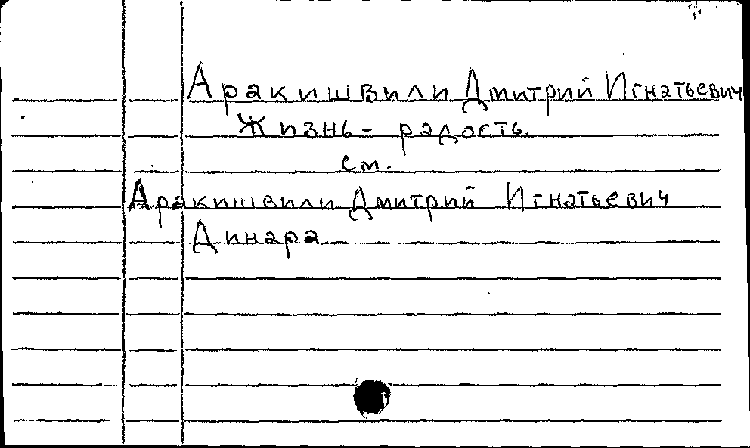 Аракишвили Дмитрий Игнатьевич
Жизнь - радость.
см.
Аракишвили Дмитрий Игнатьевич
Динара